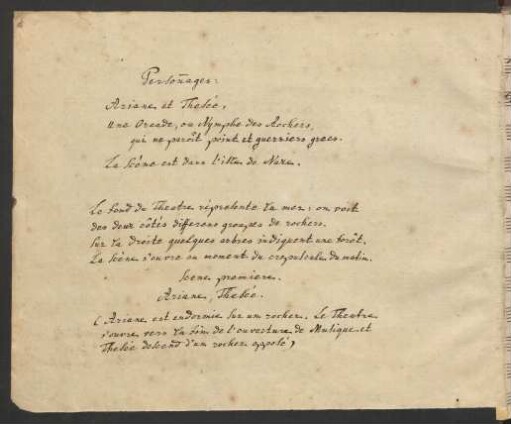 Personnages:
Ariane et Thesée,
Une Oreade, ou Nymphe des Rochers,
qui ne paroît point et guerriers grecs.
La Scène est dans l'isle de Naxe.
Le fond du Theatre réprésente la mer: on voit
des deux côtés differens groupes de rochers.
Sur la droite quelques arbres indiquent une forêt.
La Scène s'ouvre au moment du crepuscule du matin.
Scene premiere.
Ariane, Thesée.
(Ariane est endormie sur un rocher. Le Theatre
s'ouvre vers la fin de l'ouverture de Musique et
Thesée descend d'un rocher opposé)